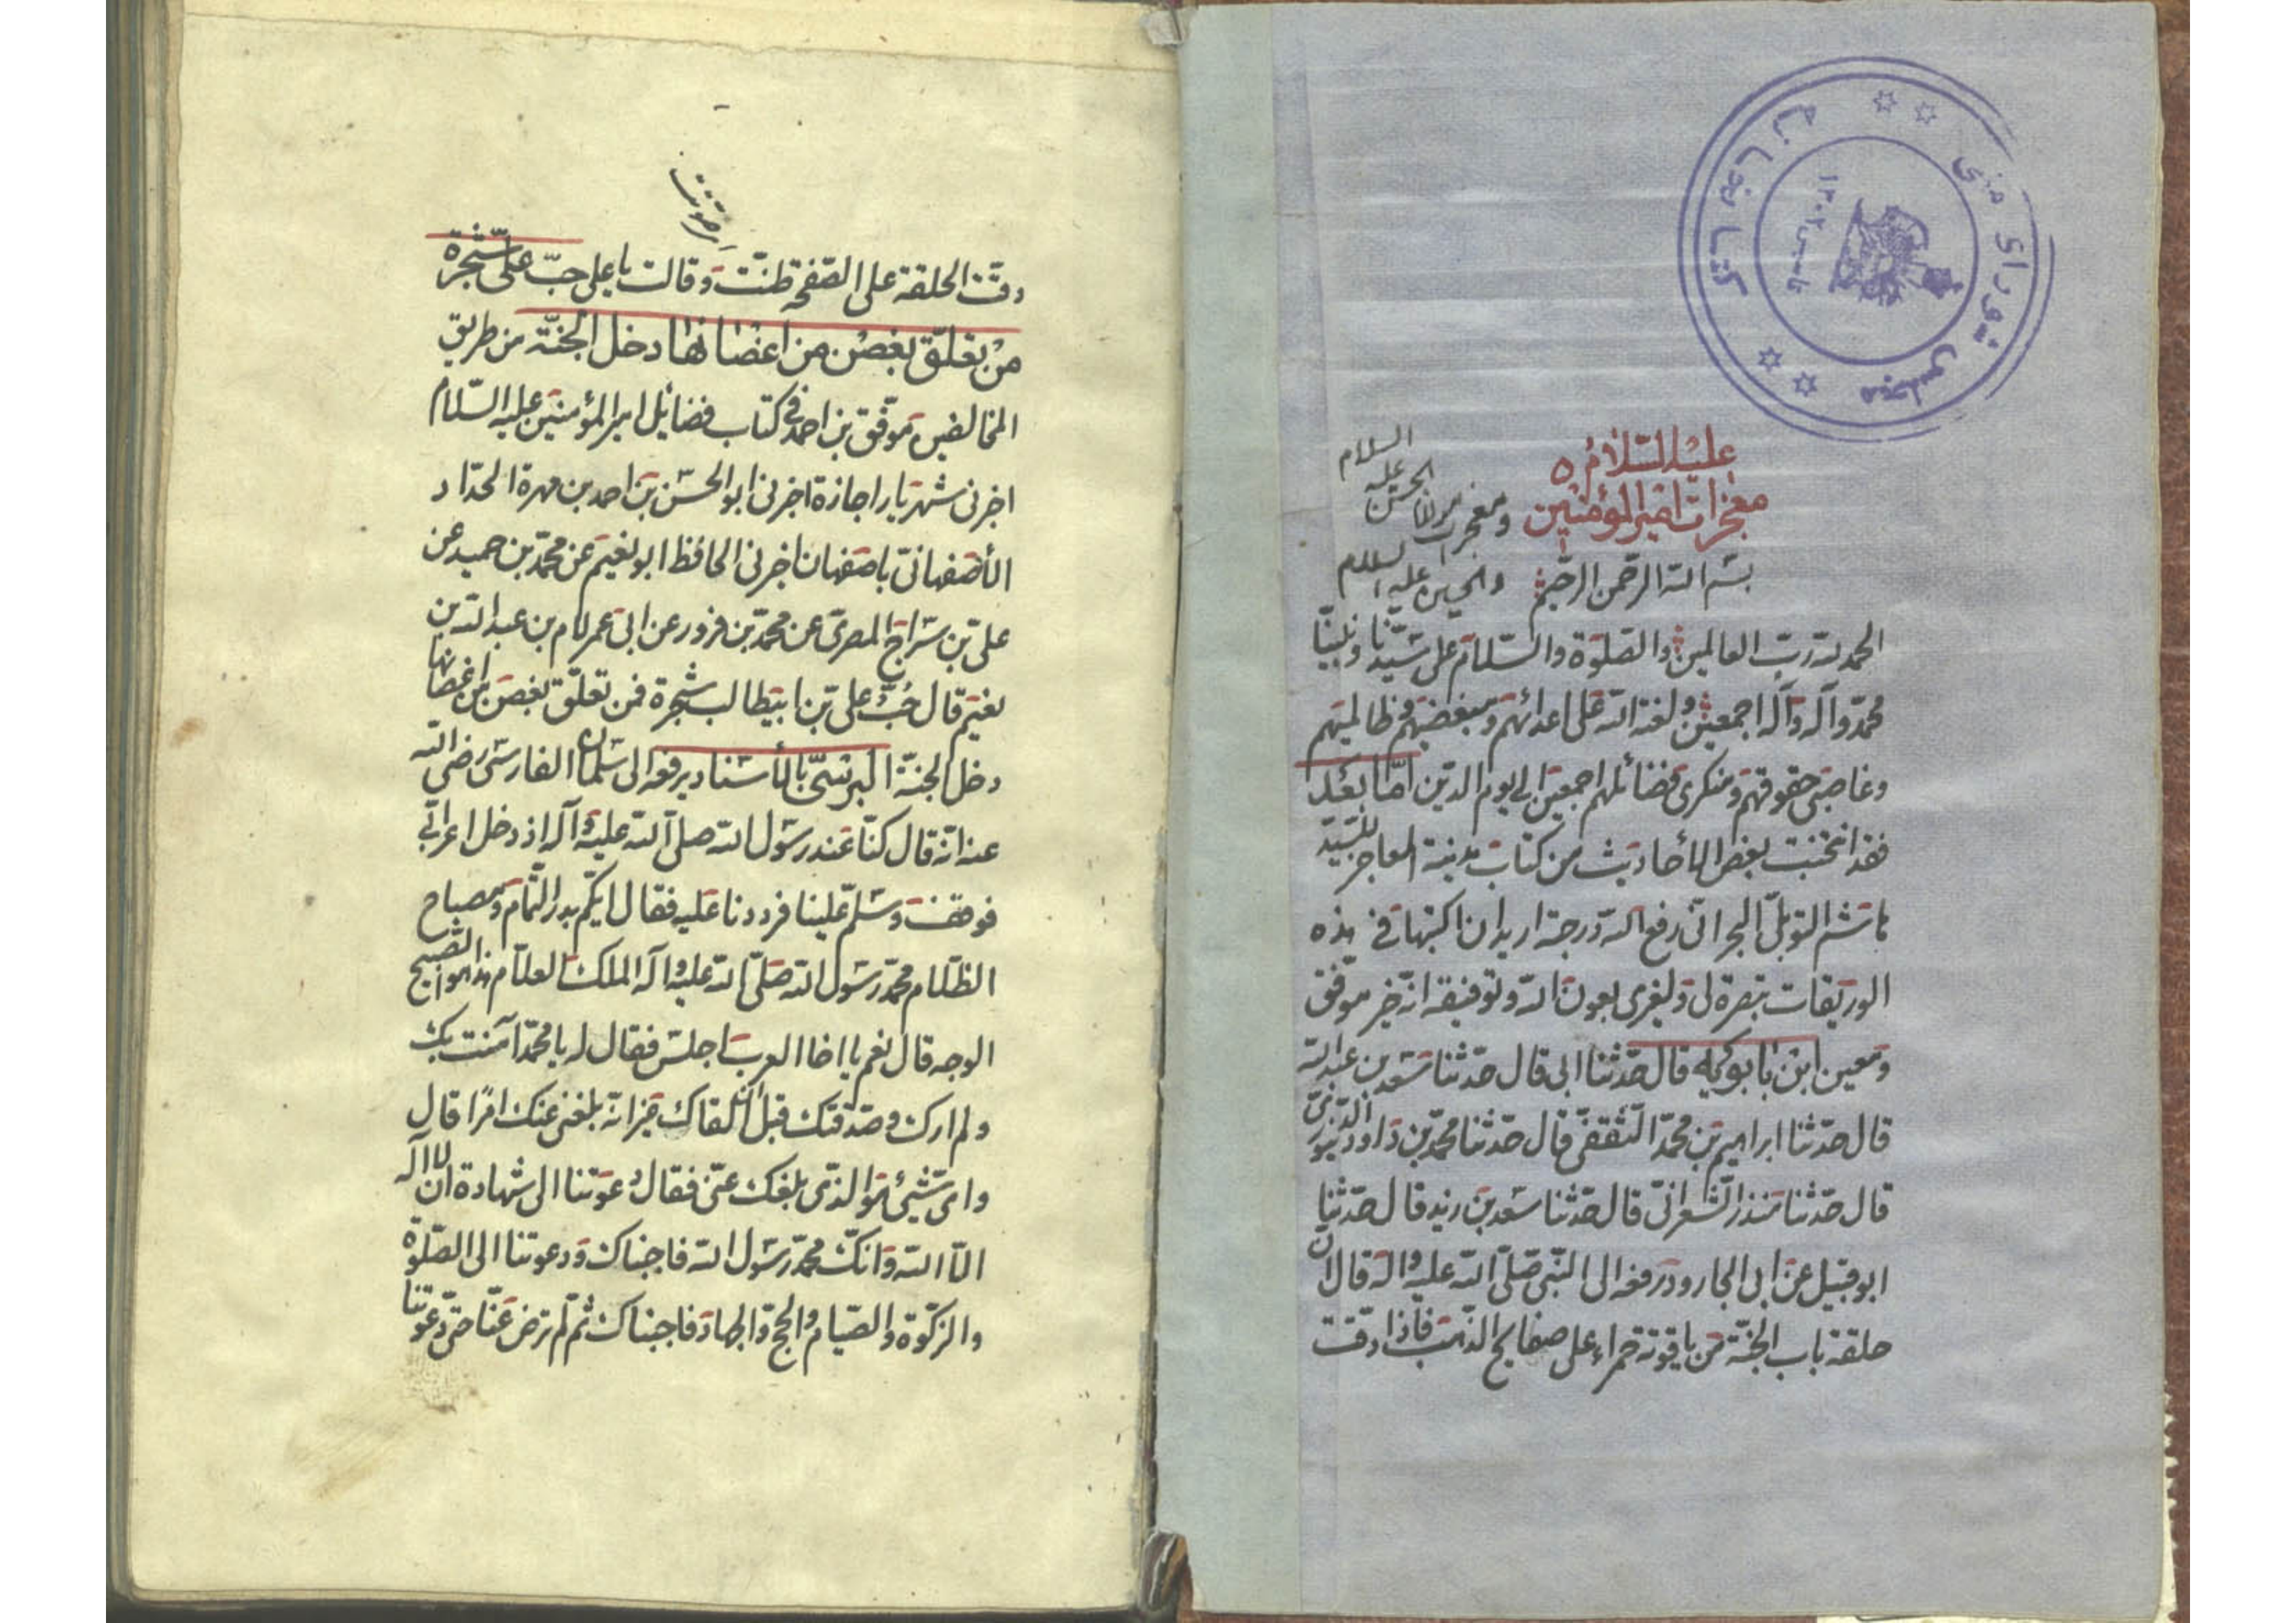 كتابخانه مجلس شورای ملی
تاسیس ۱۳۰۲
عليه السلام
معجزات امير المؤمنين
ومعجزات مولانا الحسن عليه السلام
والحسين عليه السلام
بسم الله الرحمن الرحيم
الحمد لله رب العالمين والصلوة والسلام على سيدنا ونبينا
محمد وآله وآله اجمعين ولعنة الله على اعدائهم ومبغضيهم وظالميهم
وغاصبى حقوقهم ومنكرى فضائلهم اجمعين الى يوم الدين اما بعد
فقد انتخبت بعض الأحاديث من كتاب مدينة المعاجز للسيد
هاشم التوبلى البحرانى رفع الله درجته اريد ان اكتبها فى هذه
الوريقات تبصرة لى ولغيرى بعون الله وتوفيقه انه خير موفق
ومعين ابن بابويه قال حدثنا ابى قال حدثنا سعد بن عبد الله
قال حدثنا ابراهيم بن محمد الثقفى قال حدثنا محمد بن داود الدينورى
قال حدثنا منذر الشعرانى قال حدثنا سعد بن زيد قال حدثنا
ابو قبيل عن ابى الجارود رفعه الى النبى صلى الله عليه واله قال ان
حلقة باب الجنة من ياقوتة حمراء على صفايح الذهب فاذا دقت
دقت الحلقة على الصفحة طنت وقالت يا على حب على شجرة
من تعلق بغصن من اغصانها دخل الجنة من طريق
المخالفين موفق بن احمد فى كتاب فضائل امير المؤمنين عليه السلام
اخبرنى شهريار اجازة اخبرنى ابو الحسن بن احمد بن مهرة الحداد
الأصفهانى باصفهان اخبرنى الحافظ ابو نعيم عن محمد بن حميد عن
على بن سراج المصرى عن محمد بن فرور عن ابى عمر لام بن عبد الله بن
نعيم قال حب على بن ابيطالب شجرة فمن تعلق بغصن من اغصانها
دخل الجنة البرسى بالأسناد يرفعه الى سلمان الفارسى رضى الله
عنه انه قال كنا عند رسول الله صلى الله عليه وآله اذ دخل اعرابى
فوقف وسلم علينا فرددنا عليه فقال ايكم بدر التمام ومصباح
الظلام محمد رسول الله صلى الله عليه وآله الملك العلام هذا هو الصبيح
الوجه قال نعم يا اخا العرب اجلس فقال له يا محمد آمنت بك
ولم ارك وصدقتك قبل ان القاك غير انه بلغنى عنك امرا قال
واى شيئ هو الذى بلغك عنى فقال دعوتنا الى شهادة ان لا اله
الا الله وانك محمد رسول الله فاجبناك ودعوتنا الى الصلوة
والزكوة والصيام والحج والجهاد فاجبناك ثم لم ترض عنا حتى دعوتنا